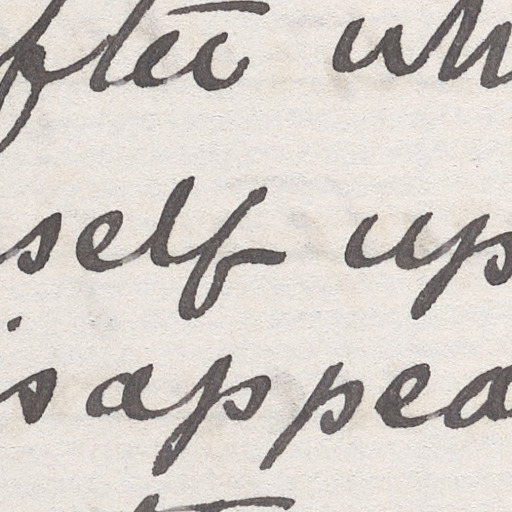 fter wh
self up
isappea